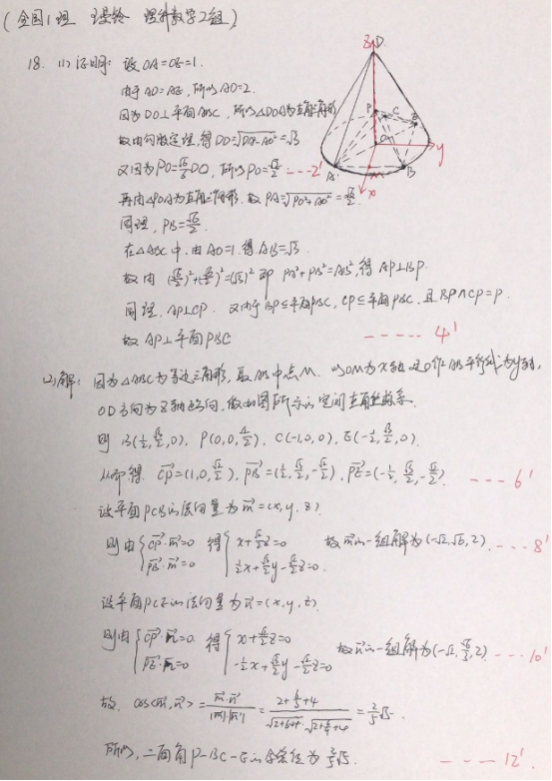 (全国1理 理科数学2组)
18. (1)证明: 设OA=OE=1.
由于AD=AE, 所以AD=2.
因为DO⊥平面ABC, 所以△DOA为直角三角形
故由勾股定理, 得DO=√(DA²-AO²)=√3
又因为PO=√6/6DO, 所以PO=√2/2 ---2'
再由△POA为直角三角形. 故PA=√(PO²+AO²)=√6/2
同理, PB=√6/2.
在△ABC中, 由AO=1, 得AB=√3.
故由(√6/2)²+(√6/2)²=(√3)² 即 PA²+PB²=AB², 得AP⊥BP.
同理, AP⊥CP. 又由于BP⊆平面PBC, CP⊆平面PBC, 且BP∩CP=P.
故AP⊥平面PBC ----- 4'
(2)解: 因为△ABC为等边三角形, 取AB中点M. 以OM为x轴 过O作AB平行线为y轴,
OD方向为z轴方向, 做如图所示的空间直角坐标系.
则 B(1/2,√3/2,0), P(0,0,√2/2), C(-1,0,0), E(-1/2,√3/2,0).
从而得 CP=(1,0,√2/2), PB=(1/2,√3/2,-√2/2), PE=(-1/2,√3/2,-√2/2). --- 6'
设平面PCB的法向量为m=(x,y,z)
则由{CP·m=0 PB·m=0 得{x+√2/2z=0 1/2x+√3/2y-√2/2z=0. 故m的一组解为(-√2,√6,2). ---8'
设平面PCE的法向量为n=(x,y,z)
则由{CP·n=0 PE·n=0 得{x+√2/2z=0 -1/2x+√3/2y-√2/2z=0 故n的一组解为(-√2,√6/3,2) ---10'
故 cos<m,n>=m·n/|m||n|=(2+6/3+4)/(√(2+6+4)·√(2+6/9+4))=2/5√5.
所以, 二面角P-BC-E的余弦值为2/5√5. --- 12'
z
D
P
C
E
O
y
A
M
B
x